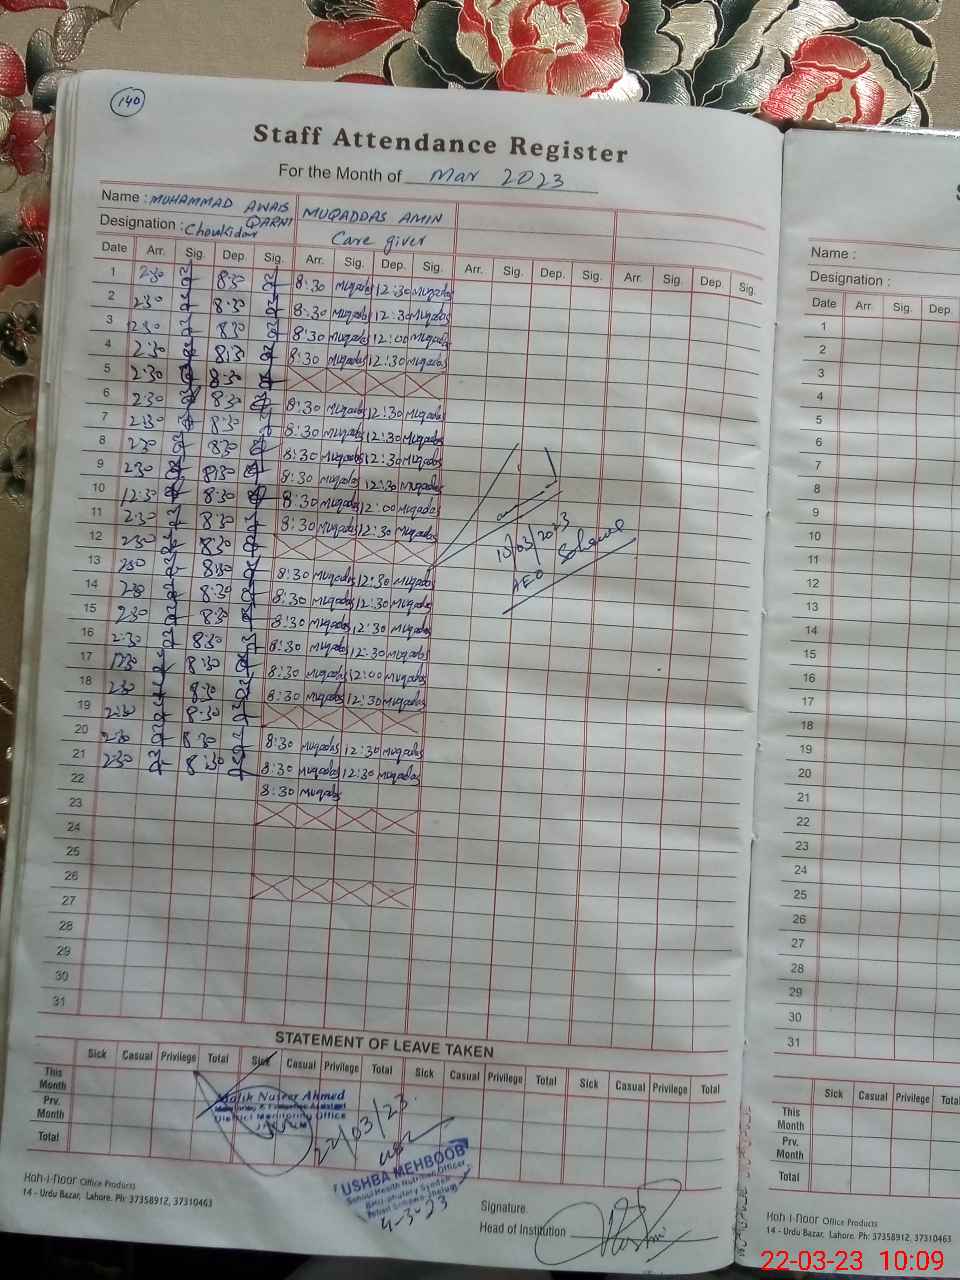 140
Staff Attendance Register
For the Month of Mar 2023
Name : MUHAMMAD AWAIS QARNI MUQADDAS AMIN
Designation : Chowkidar Care giver
Date Arr. Sig. Dep. Sig. Arr. Sig. Dep. Sig. Arr. Sig. Dep. Sig. Arr. Sig. Dep. Sig.
1 2:30 8:30 8:30 Muqadas 12:30 Muqadas
2 2:30 8:30 8:30 Muqadas 12:30 Muqadas
3 2:30 8:30 8:30 Muqadas 12:00 Muqadas
4 2:30 8:30 8:30 Muqadas 12:30 Muqadas
5 2:30 8:30
6 2:30 8:30 8:30 Muqadas 12:30 Muqadas
7 2:30 8:30 8:30 Muqadas 12:30 Muqadas
8 2:30 8:30 8:30 Muqadas 12:30 Muqadas
9 2:30 8:30 8:30 Muqadas 12:30 Muqadas
10 12:30 8:30 8:30 Muqadas 12:00 Muqadas
11 2:30 8:30 8:30 Muqadas 12:30 Muqadas
12 2:30 8:30
13 2:30 8:30 8:30 Muqadas 12:30 Muqadas
14 2:30 8:30 8:30 Muqadas 12:30 Muqadas
15 2:30 8:30 8:30 Muqadas 12:30 Muqadas
16 2:30 8:30 8:30 Muqadas 12:30 Muqadas
17 8:30 8:30 Muqadas 12:00 Muqadas
18 2:30 8:30 8:30 Muqadas 12:30 Muqadas
19 2:30 8:30
20 2:30 8:30 8:30 Muqadas 12:30 Muqadas
21 2:30 8:30 8:30 Muqadas 12:30 Muqadas
22 8:30 Muqadas
23
24
25
26
27
28
29
30
31
10/03/2023
AEO Sohawa
STATEMENT OF LEAVE TAKEN
Sick Casual Privilege Total Sick Casual Privilege Total Sick Casual Privilege Total Sick Casual Privilege Total
This Month
Prv. Month
Total
Malik Nuseer Ahmed
District Monitoring Office
22/03/23
USHBA MEHBOOB
School Health Nutrition Officer
4-3-23
Signature.
Head of Institution
Koh-i-noor Office Products
14 - Urdu Bazar, Lahore. Ph: 37358912, 37310463
Name :
Designation :
Date Arr. Sig. Dep.
1
2
3
4
5
6
7
8
9
10
11
12
13
14
15
16
17
18
19
20
21
22
23
24
25
26
27
28
29
30
31
Sick Casual Privilege Total
This Month
Prv. Month
Total
Koh-i-noor Office Products
14 - Urdu Bazar, Lahore. Ph: 37358912, 37310463
22-03-23 10:09